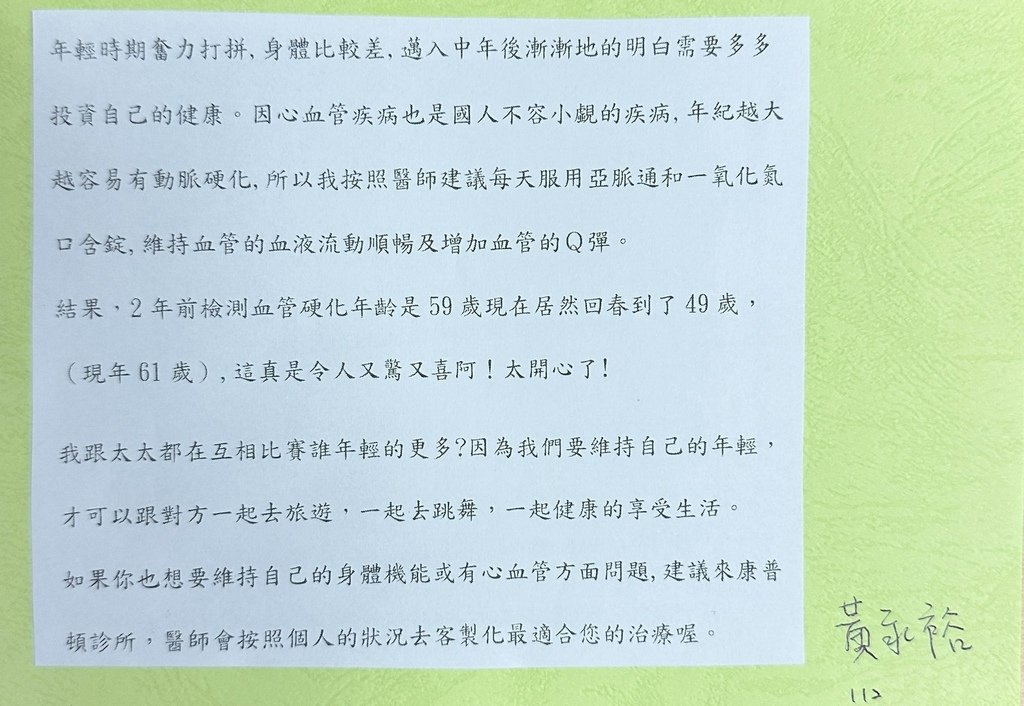 年輕時期奮力打拼,身體比較差,邁入中年後漸漸地的明白需要多多
投資自己的健康。因心血管疾病也是國人不容小覷的疾病,年紀越大
越容易有動脈硬化,所以我按照醫師建議每天服用亞脈通和一氧化氮
口含錠,維持血管的血液流動順暢及增加血管的Q彈。
結果，2 年前檢測血管硬化年齡是 59 歲現在居然回春到了 49 歲，
（現年 61 歲）,這真是令人又驚又喜阿！太開心了!
我跟太太都在互相比賽誰年輕的更多?因為我們要維持自己的年輕，
才可以跟對方一起去旅遊，一起去跳舞，一起健康的享受生活。
如果你也想要維持自己的身體機能或有心血管方面問題,建議來康普
頓診所，醫師會按照個人的狀況去客製化最適合您的治療喔。
黃永裕
112